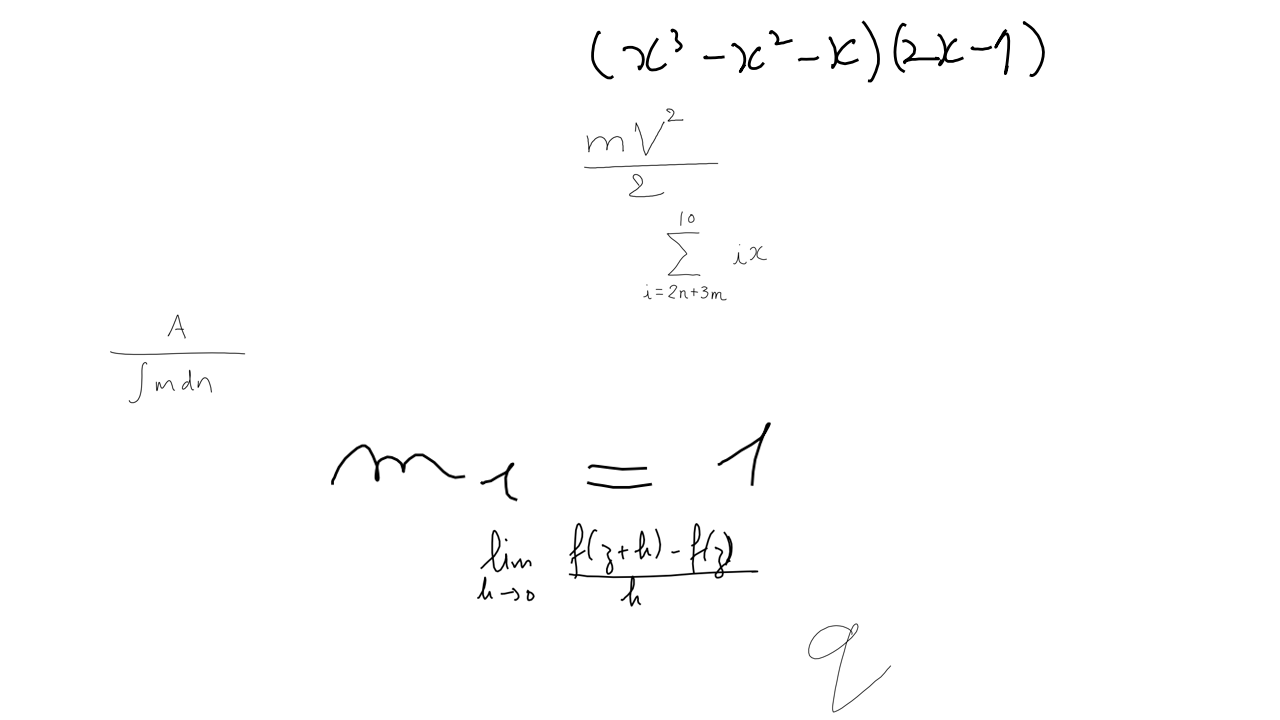 (x³ - x² - x)(2x - 1)
\frac{mV^2}{2}
\sum_{i=2n+3m}^{10} ix
\frac{A}{\int m dn}
m_1 = 1
\lim_{h \to 0} \frac{f(z+h) - f(z)}{h}
q